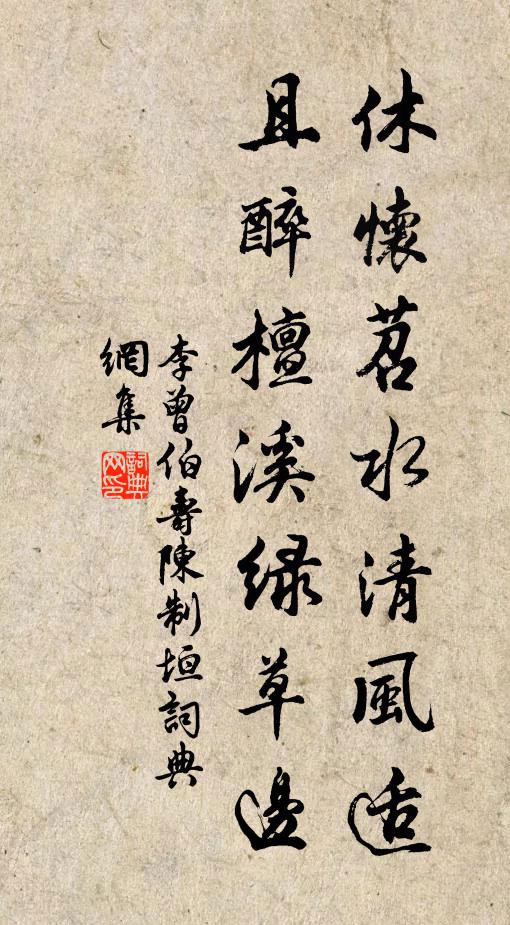 休懷苕水清風适
且醉檀溪緑草邊
李曾伯壽陳制垣詞典
網集
詞典網印